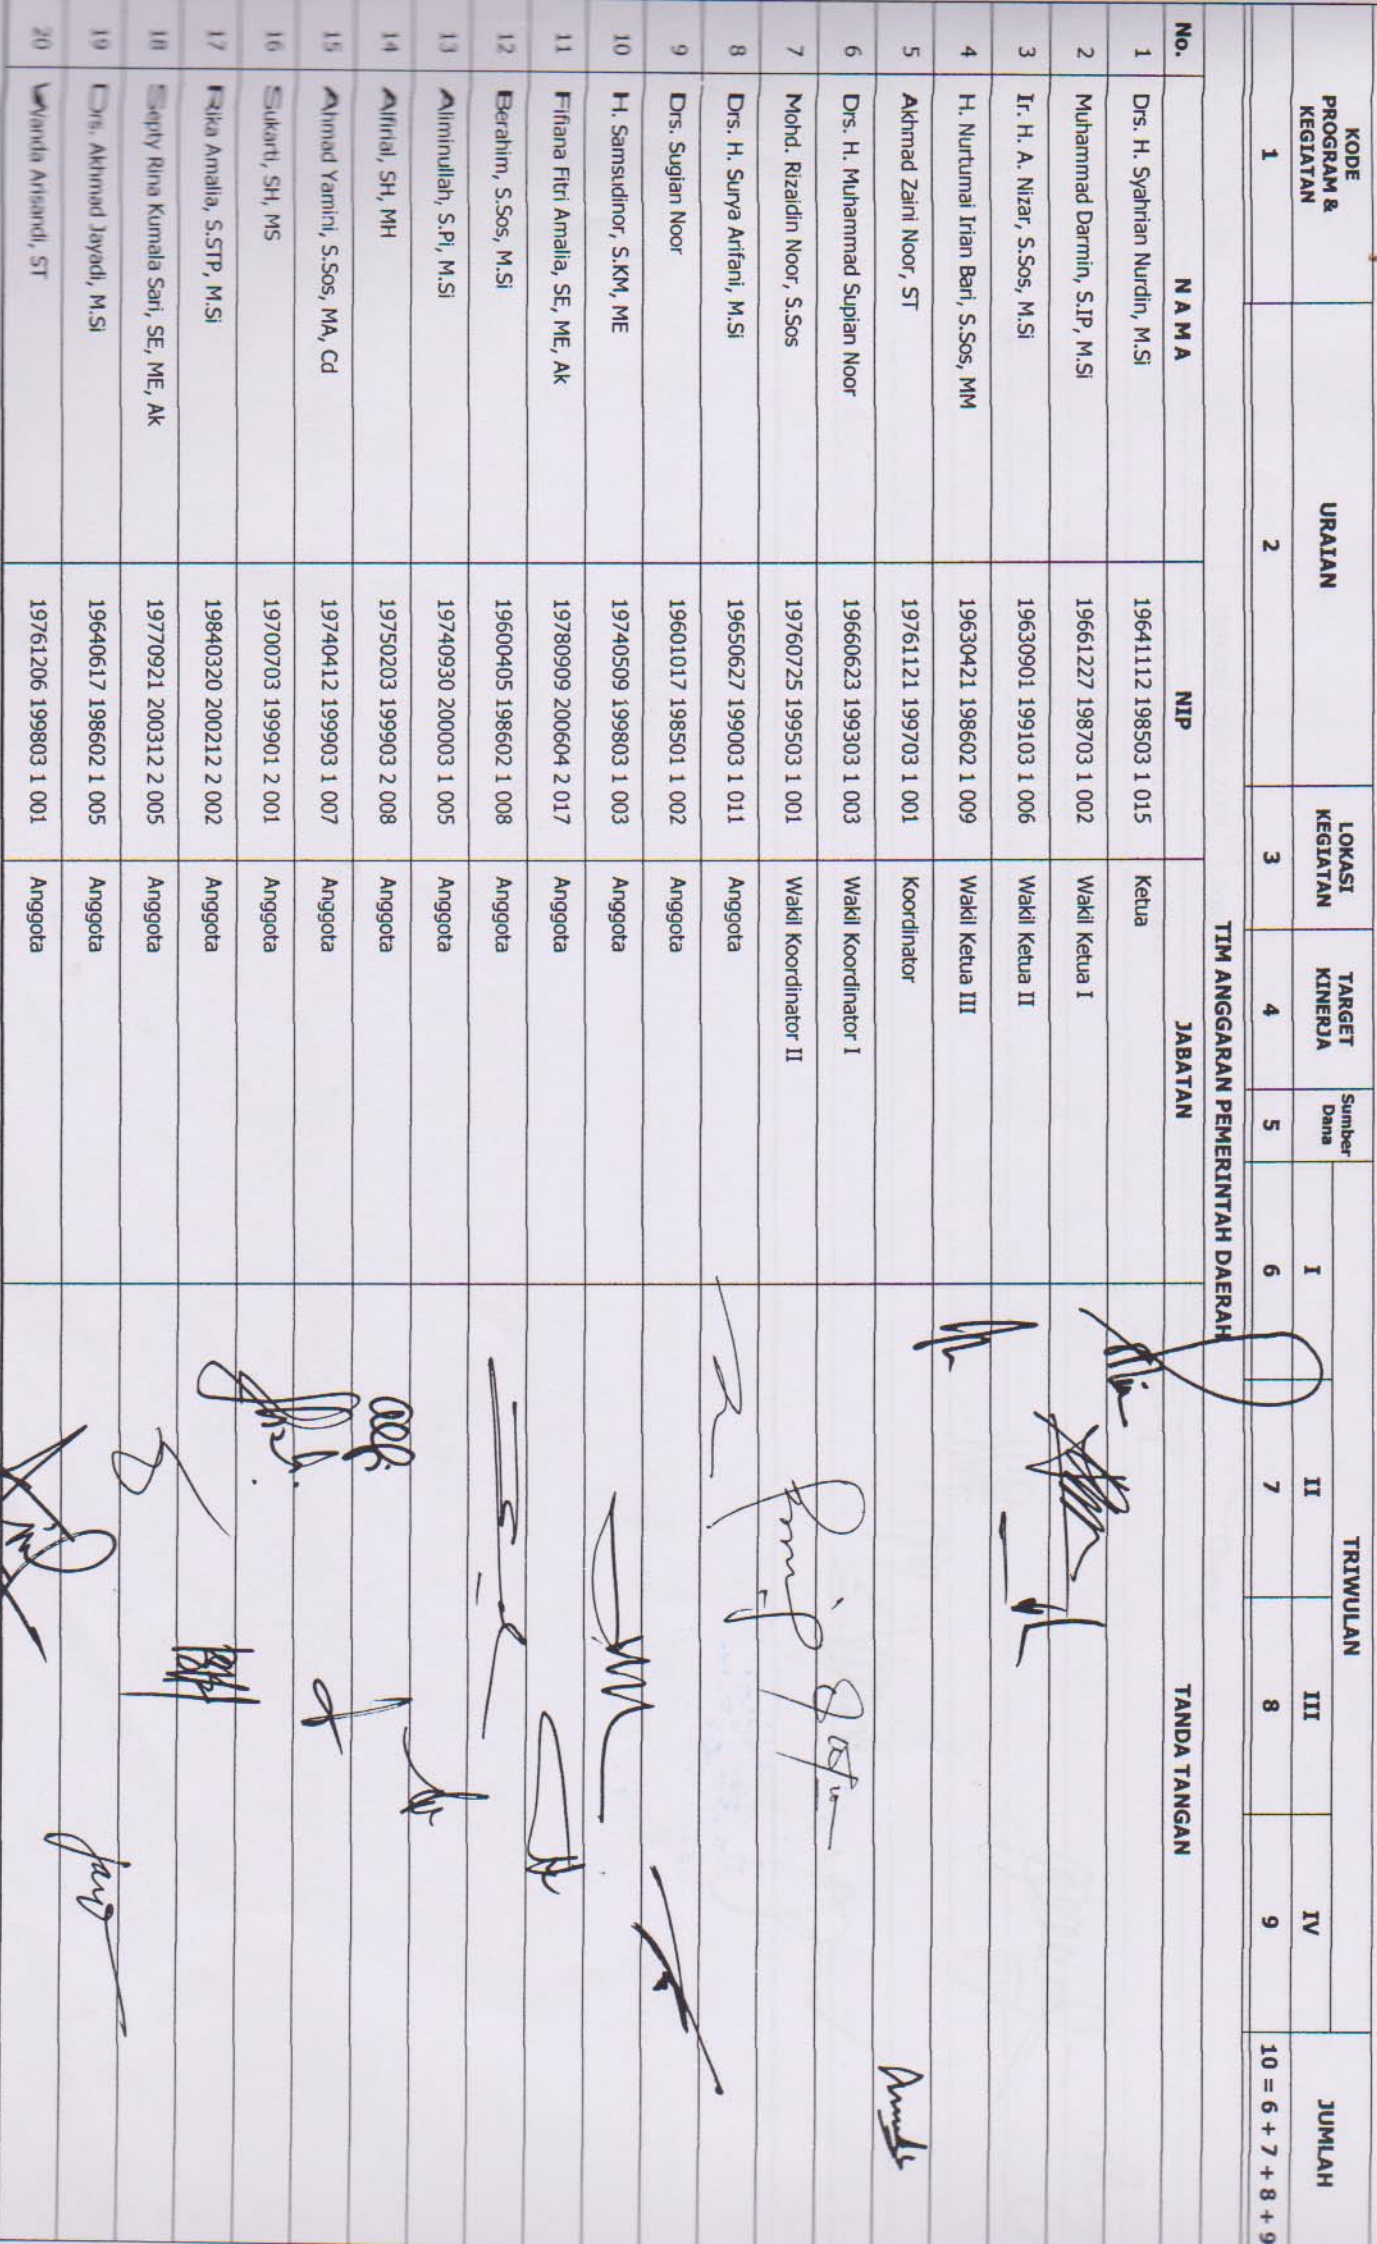 KODE PROGRAM & KEGIATAN | URAIAN | LOKASI KEGIATAN | TARGET KINERJA | Sumber Dana | TRIWULAN | JUMLAH
I | II | III | IV
1 | 2 | 3 | 4 | 5 | 6 | 7 | 8 | 9 | 10 = 6 + 7 + 8 + 9
TIM ANGGARAN PEMERINTAH DAERAH
No. | N A M A | NIP | JABATAN | TANDA TANGAN
1 | Drs. H. Syahrian Nurdin, M.Si | 19641112 198503 1 015 | Ketua
2 | Muhammad Darmin, S.IP, M.Si | 19661227 198703 1 002 | Wakil Ketua I
3 | Ir. H. A. Nizar, S.Sos, M.Si | 19630901 199103 1 006 | Wakil Ketua II
4 | H. Nurtumai Irian Bari, S.Sos, MM | 19630421 198602 1 009 | Wakil Ketua III
5 | Akhmad Zaini Noor, ST | 19761121 199703 1 001 | Koordinator
6 | Drs. H. Muhammad Supian Noor | 19660623 199303 1 003 | Wakil Koordinator I
7 | Mohd. Rizaidin Noor, S.Sos | 19760725 199503 1 001 | Wakil Koordinator II
8 | Drs. H. Surya Arifani, M.Si | 19650627 199003 1 011 | Anggota
9 | Drs. Sugian Noor | 19601017 198501 1 002 | Anggota
10 | H. Samsudinor, S.KM, ME | 19740509 199803 1 003 | Anggota
11 | Fifiana Fitri Amalia, SE, ME, Ak | 19780909 200604 2 017 | Anggota
12 | Berahim, S.Sos, M.Si | 19600405 198602 1 008 | Anggota
13 | Aliminullah, S.Pi, M.Si | 19740930 200003 1 005 | Anggota
14 | Alfirial, SH, MH | 19750203 199903 2 008 | Anggota
15 | Ahmad Yamini, S.Sos, MA, Cd | 19740412 199903 1 007 | Anggota
16 | Sukarti, SH, MS | 19700703 199901 2 001 | Anggota
17 | Rika Amalia, S.STP, M.Si | 19840320 200212 2 002 | Anggota
18 | Septy Rina Kumala Sari, SE, ME, Ak | 19770921 200312 2 005 | Anggota
19 | Drs. Akhmad Jayadi, M.Si | 19640617 198602 1 005 | Anggota
20 | Wanda Arisandi, ST | 19761206 199803 1 001 | Anggota